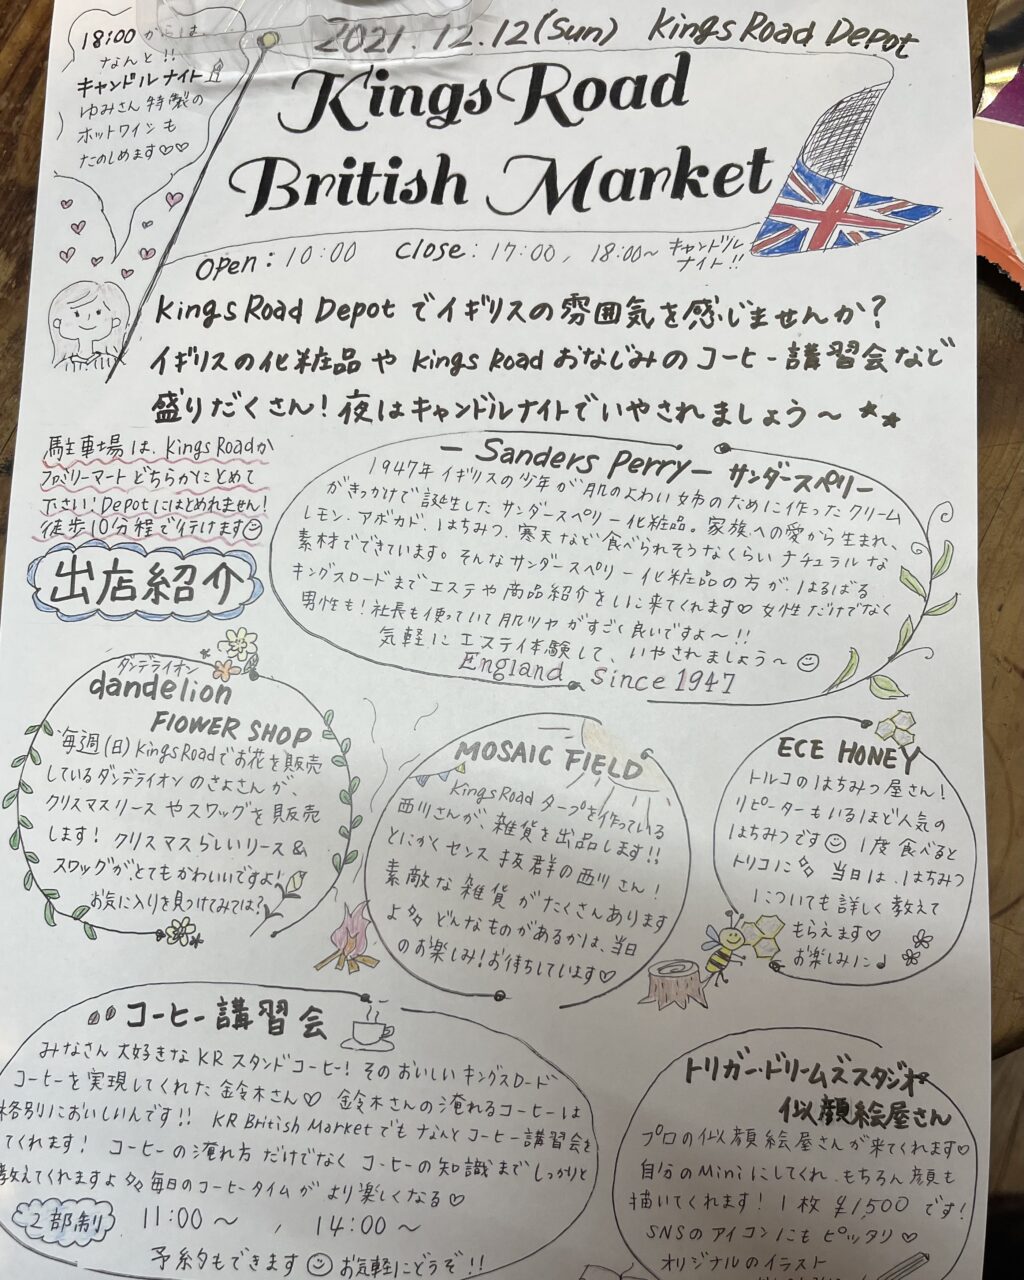 2021.12.12(Sun) Kings Road Depot
18:00からは、
なんと!!
キャンドルナイト
ゆみさん特製の
ホットワインも
たのしめます♡♡
Kings Road
British Market
open: 10:00 Close: 17:00, 18:00~ キャンドル
ナイト!!
Kings Road Depotでイギリスの雰囲気を感じませんか?
イギリスの化粧品や Kings Road おなじみのコーヒー講習会など
盛りだくさん!夜はキャンドルナイトでいやされましょう~ ★★
駐車場は、Kings Roadか
ファミリーマートどちらかにとめて
下さい!Depotにはとめれません!
徒歩10分程で行けます☺
出店紹介
- Sanders Perry - サンダースペリー
1947年イギリスの少年が肌のよわい姉のために作ったクリーム
がきっかけで誕生したサンダースペリー化粧品。家族への愛から生まれ、
レモン、アボカド、はちみつ、寒天など食べられそうなくらいナチュラルな
素材でできています。そんなサンダースペリー化粧品の方が、はるばる
キングスロードまでエステや商品紹介をしに来てくれます♡ 女性だけでなく
男性も!社長も使っていて肌ツヤがすごく良いですよ~!!
気軽にエステイ体験して、いやされましょう~☺
England Since 1947
ダンデライオン
dandelion
FLOWER SHOP
毎週(日)Kings Roadでお花を販売
しているダンデライオンのさよさんが、
クリスマスリースやスワッグを販売
します!クリスマスらしいリース&
スワッグが、とてもかわいいですよ!
お気に入りを見つけてみては?
MOSAIC FIELD
Kings Road タープを作っている
西川さんが、雑貨を出品します!!
とにかくセンス抜群の西川さん!
素敵な雑貨がたくさんあります
よ どんなものがあるかは、当日
のお楽しみ!お待ちしています♡
ECE HONEY
トルコのはちみつ屋さん!
リピーターもいるほど人気の
はちみつです☺ 1度食べると
トリコに 当日は、はちみつ
についても詳しく教えて
もらえます♡
お楽しみに♪
コーヒー講習会
みなさん大好きなKRスタンドコーヒー!そのおいしいキングスロード
コーヒーを実現してくれた鈴木さん♡ 鈴木さんの淹れるコーヒーは
格別においしいんです!! KR British Marketでもなんとコーヒー講習会を
てくれます!コーヒーの淹れ方だけでなくコーヒーの知識までしっかりと
教えてくれますよ 毎日のコーヒータイムがより楽しくなる♡
2部制 11:00~, 14:00~
予約もできます☺ お気軽にどうぞ!!
トリガー・ドリームズスタジオ
似顔絵屋さん
プロの似顔絵屋さんが来てくれます♡
自分のMiniにしてくれ、もちろん顔も
描いてくれます!1枚 ¥1,500 です!
SNSのアイコンにもピッタリ♡
オリジナルのイラスト